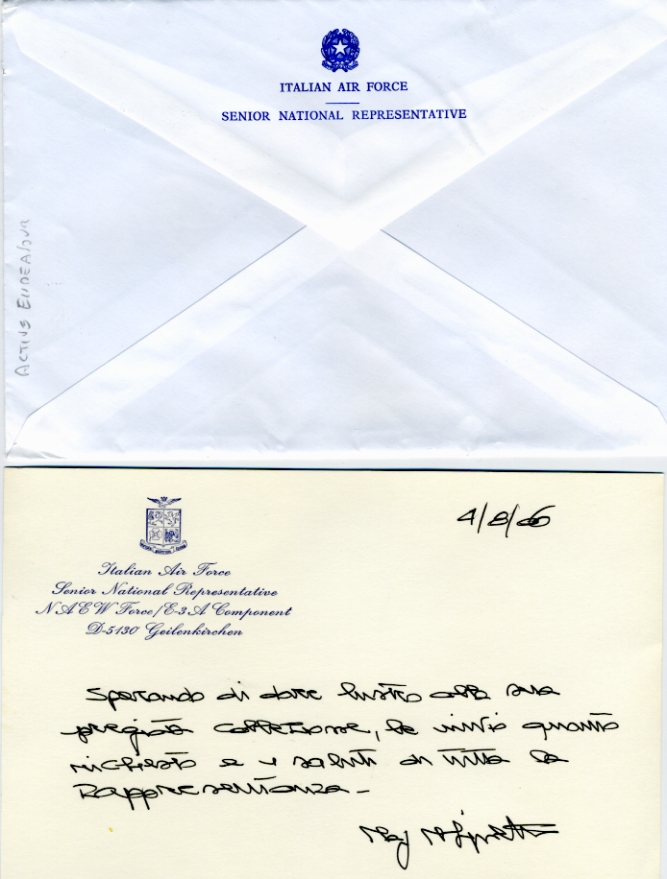 ITALIAN AIR FORCE
SENIOR NATIONAL REPRESENTATIVE
ACTIVE ENDEAVOUR
4/8/06
Italian Air Force
Senior National Representative
NAEW Force/E-3A Component
D-5130 Geilenkirchen
Sperando di dare lustro alla sua
pregiata collezione, le invio quanto
richiesto e i saluti di tutta la
Rappresentanza -
Maj